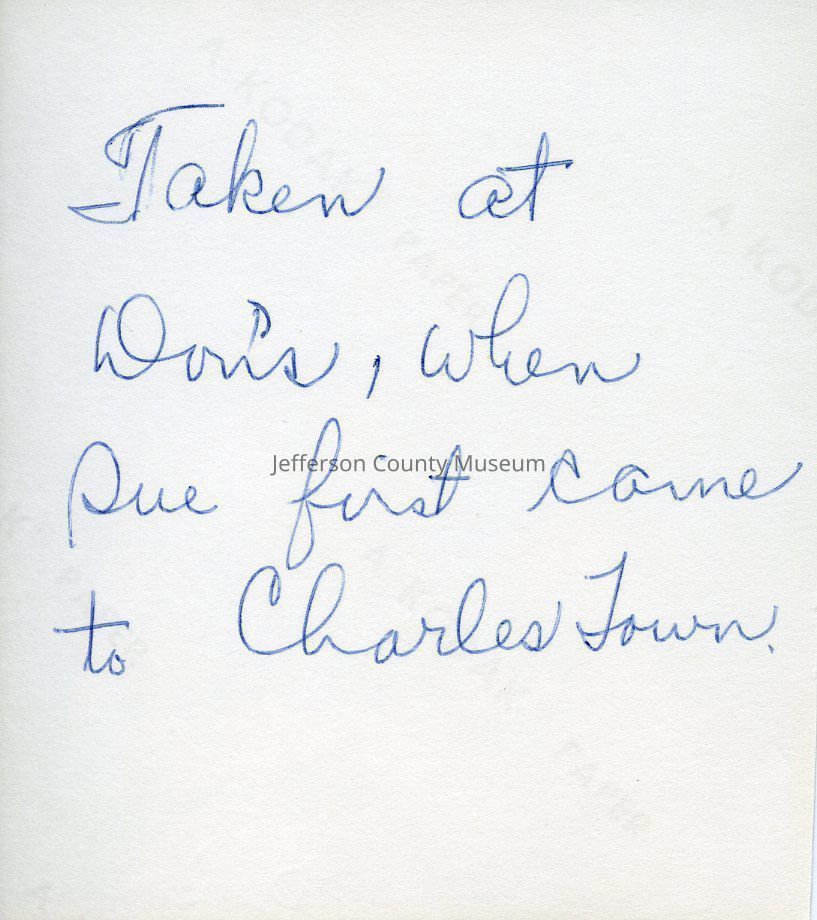 Taken at
Don's, when
Sue first came
Jefferson County Museum
to Charles Town.
A KODAK
PAPER
A KOD